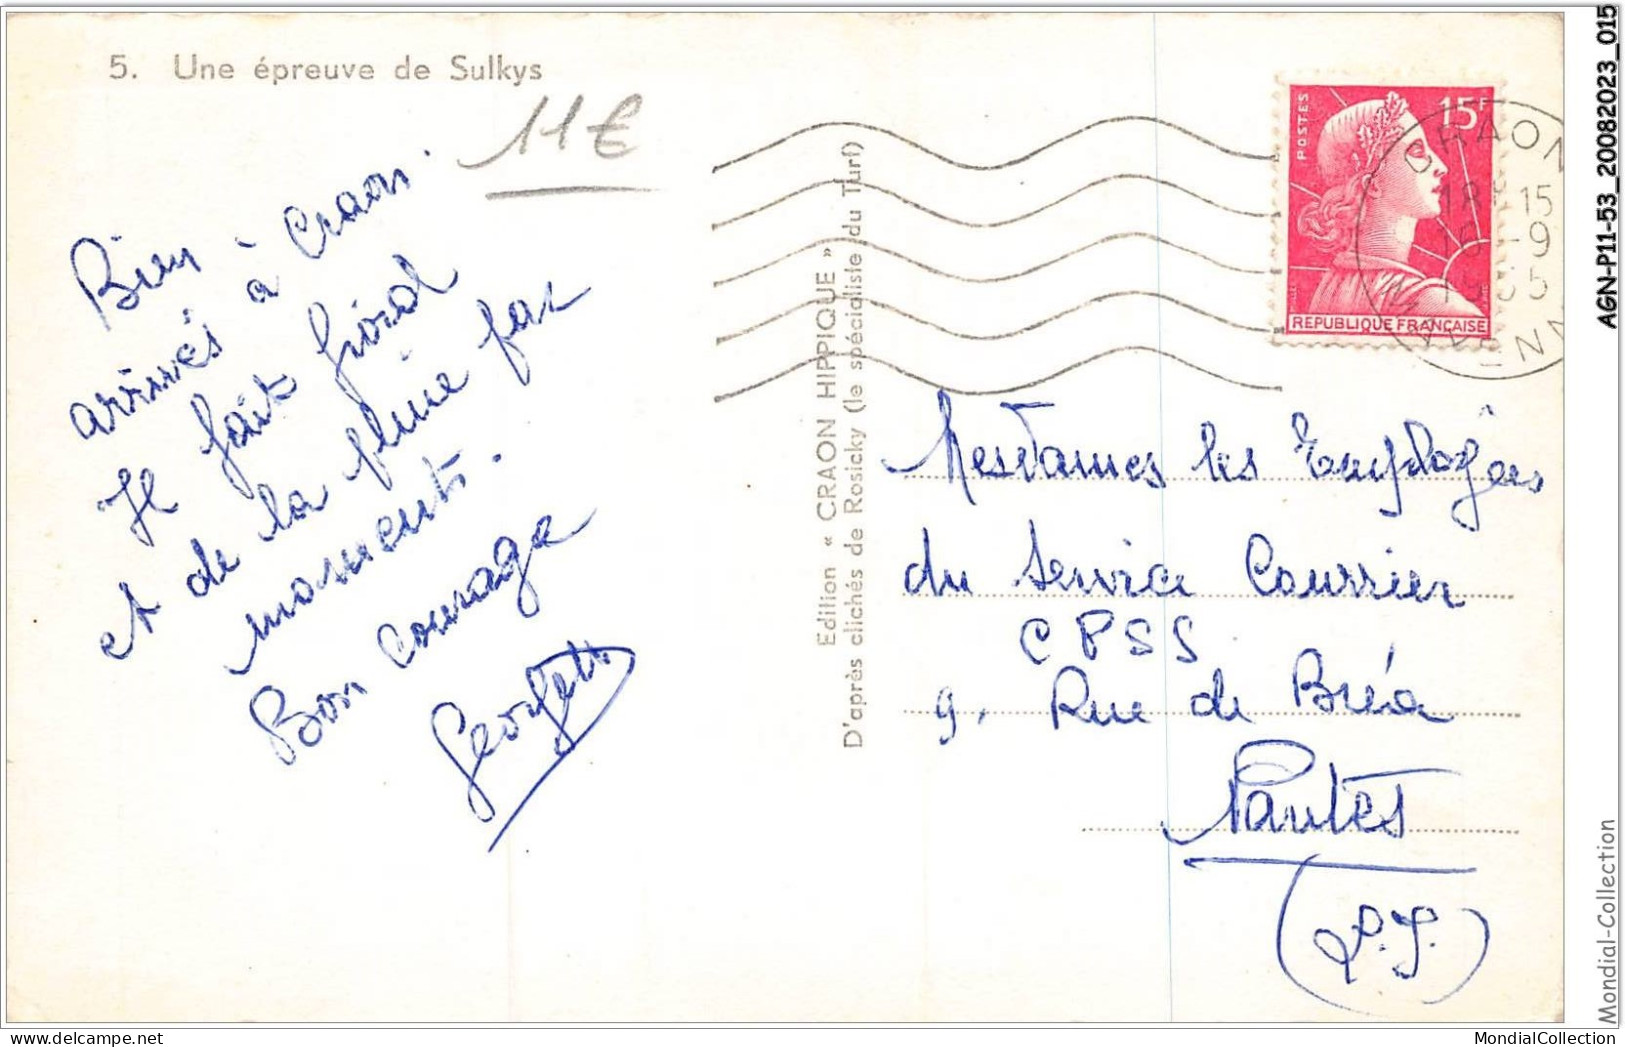 5. Une épreuve de Sulkys
11€
Bien
arrivés à Craon.
Il fait froid
et de la pluie par
moments.
Bon courage
Georgette
Edition « CRAON HIPPIQUE »
D'après clichés de Rosicky (le spécialiste du Turf)
POSTES
15F
REPUBLIQUE FRANÇAISE
CRAON
18H15
-9
MAYENNE
Mesdames les Employées
du Service Courrier
CPSS
9, Rue de Bréa
Nantes
AGN-P11-53_20082023_015
Mondial-Collection
MondialCollection